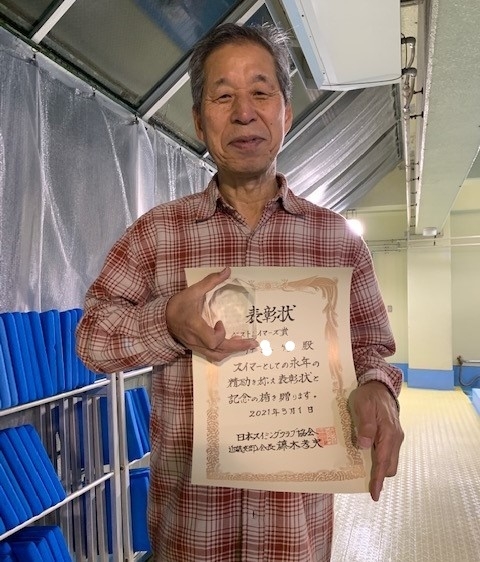 表彰状
ベストスイマーズ賞
殿
スイマーとしての永年の
精励を称え表彰状と
記念の楯を贈ります。
2021年3月1日
日本スイミングクラブ協会
近畿支部 会長 藤木孝夫